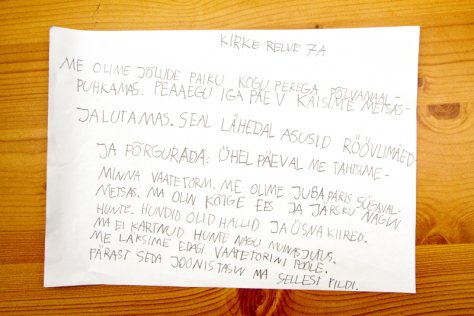 KIRKE RELVE 7A
ME OLIME JÕULUDE PAIKU KOGU PEREGA PÕLVAMAAL-
PUHKAMAS. PEAAEGU IGA PÄEV KÄISIME METSAS-
JALUTAMAS. SEAL LÄHEDAL ASUSID RÖÖVLIMÄED-
JA PÕRGURADA. ÜHEL PÄEVAL ME TAHTSIME-
MINNA VAATETORNI. ME OLIME JUBA PÄRIS SÜGAVAL-
METSAS. MA OLIN KÕIGE EES JA JÄRSKU NÄGIN
HUNTE. HUNDID OLID HALLID JA ÜSNA KIIRED.
MA EI KARTNUD HUNTE NAGU MUINASJUTUS.
ME LÄKSIME EDASI VAATETORNI POOLE.
PÄRAST SEDA JOONISTASIN MA SELLEST PILDI.